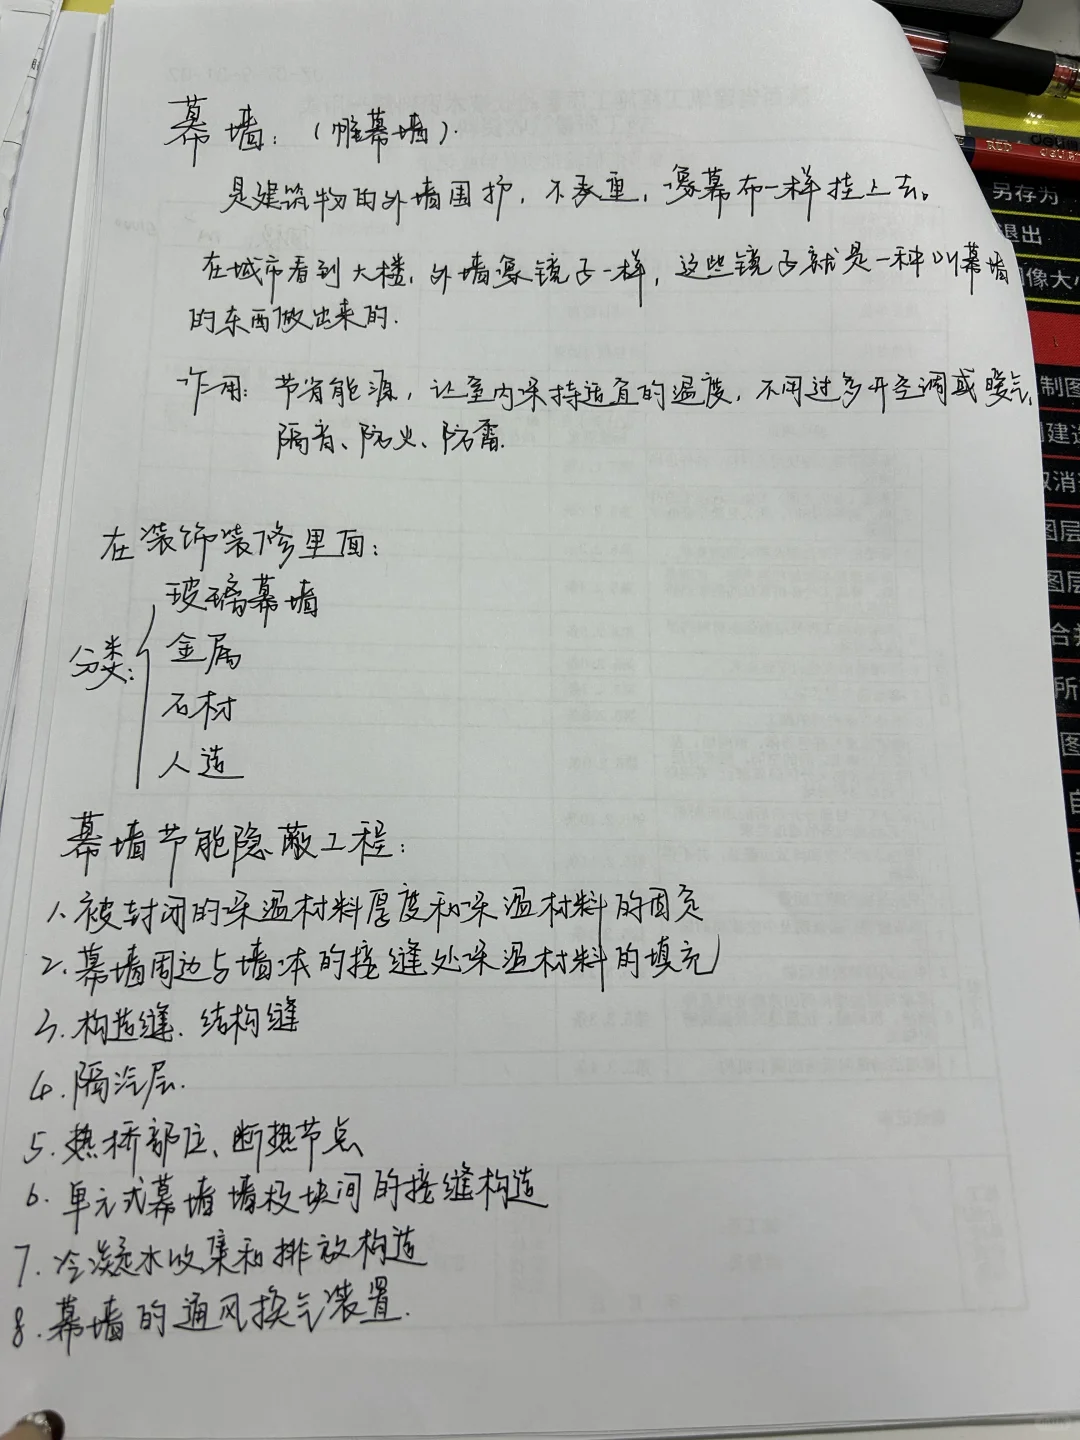 幕墙：（帷幕墙）.
是建筑物的外墙围护，不承重，像幕布一样挂上去。
在城市看到大楼，外墙像镜子一样，这些镜子就是一种叫幕墙
的东西做出来的.
作用：节省能源，让室内保持适宜的温度，不用过多开空调或暖气，
隔音、防火、防雷.
在装饰装修里面：
分类：
玻璃幕墙
金属
石材
人造
幕墙节能隐蔽工程：
1、被封闭的保温材料厚度和保温材料的固定
2、幕墙周边与墙体的接缝处保温材料的填充
3、构造缝、结构缝
4、隔汽层.
5、热桥部位、断热节点
6、单元式幕墙墙板块间的接缝构造
7、冷凝水收集和排放构造
8、幕墙的通风换气装置.
deli
RED
deli
另存为
退出
图像大小
制图
建造
取消
图层
图层
合并
所
图
自